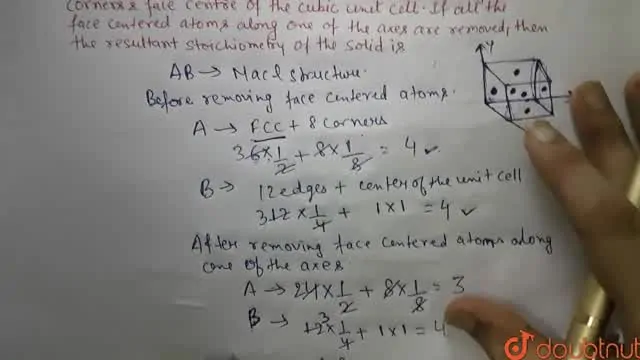 corners & face centre of the cubic unit cell. If all the
face centered atoms along one of the axes are removed, then
the resultant stoichiometry of the solid is
AB → Nacl structure.
Before removing face centered atoms.
A → FCC + 8 corners
3 6 × 1/2 + 8 × 1/8 = 4 ✓
B → 12 edges + center of the unit cell
3 12 × 1/4 + 1 × 1 = 4 ✓
After removing face centered atoms along
one of the axes.
A → 2 4 × 1/2 + 8 × 1/8 = 3
B → 12 3 × 1/4 + 1 × 1 = 4
Y
doubtnut